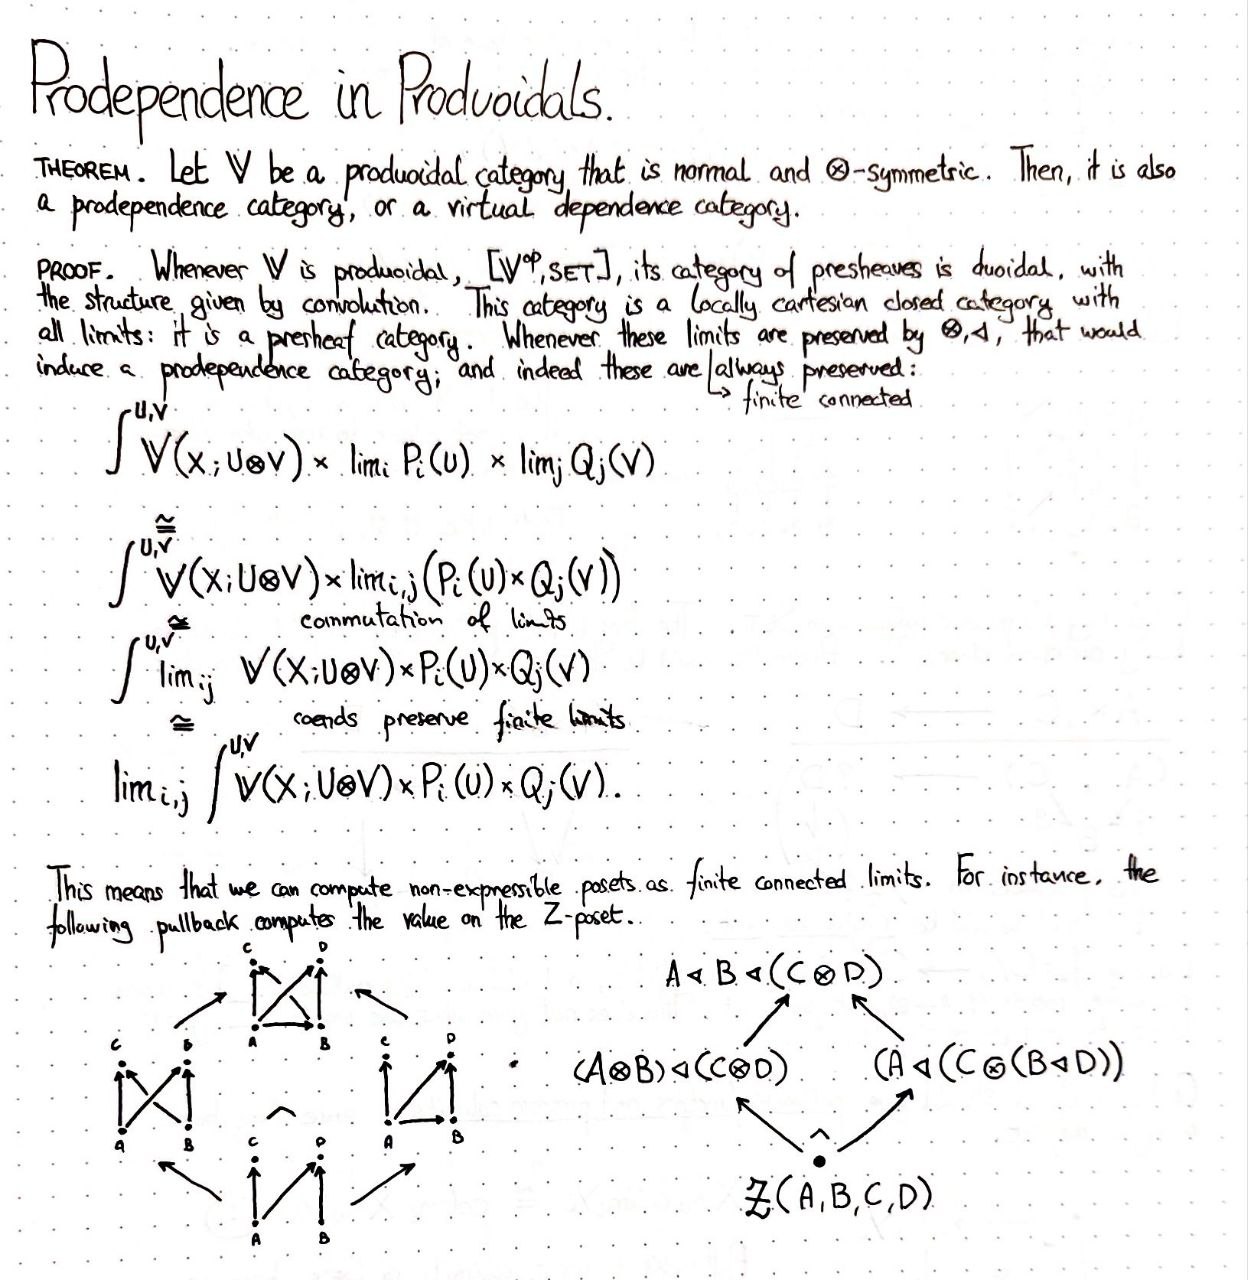 Prodependence in Produoidals.
THEOREM. Let 𝕍 be a produoidal category that is normal and ⊗-symmetric. Then, it is also
a prodependence category, or a virtual dependence category.
PROOF. Whenever 𝕍 is produoidal, [𝕍ᵒᵖ, SET], its category of presheaves is duoidal, with
the structure given by convolution. This category is a locally cartesian closed category with
all limits: it is a presheaf category. Whenever these limits are preserved by ⊗,◁, that would
induce a prodependence category; and indeed these are always preserved:
↳ finite connected
∫^{U,V} 𝕍(X; U⊗V) × limᵢ Pᵢ(U) × limⱼ Qⱼ(V)
≅
∫^{U,V} 𝕍(X; U⊗V) × lim_{i,j} (Pᵢ(U) × Qⱼ(V))
≅ commutation of limits
∫^{U,V} lim_{ij} 𝕍(X; U⊗V) × Pᵢ(U) × Qⱼ(V)
≅ coends preserve finite limits
lim_{i,j} ∫^{U,V} 𝕍(X; U⊗V) × Pᵢ(U) × Qⱼ(V).
This means that we can compute non-expressible posets as finite connected limits. For instance, the
following pullback computes the value on the Z-poset.
C D
A B
C D
A B
C D
A B
C D
A B
A ◁ B ◁ (C ⊗ D)
(A⊗B) ◁ (C⊗D)
(A ◁ (C ⊗ (B ◁ D))
Z(A,B,C,D)